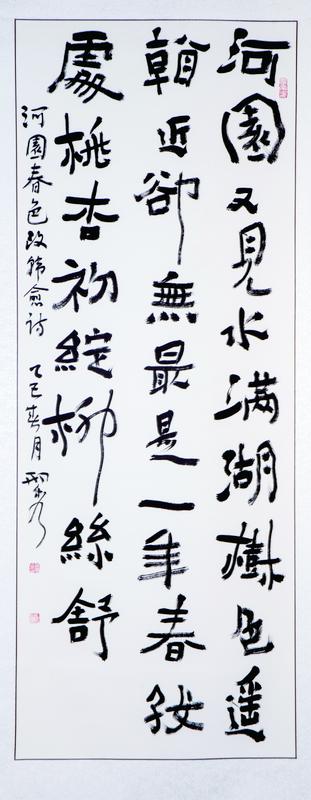 河園又見水满湖樹色遥
看近卻無最是一年春好
處桃杏初綻柳絲舒
河園春色改韓愈詩 乙巳春月